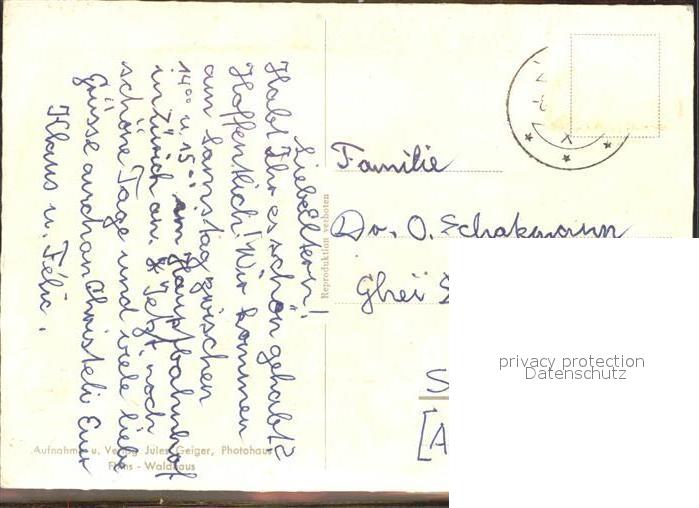 Liebe Eltern!
Habt Ihr es schön gehabt?
Hoffentlich! Wir kommen
am Samstag zwischen
14⁰⁰ u 15⁰⁰ am Hauptbahnhof
in Zürich an. Jetzt noch
schöne Tage und viele liebe
Grüsse auch an Christeli Euer
Klaus u. Félic.
Familie
Dr. O. Schakmann
Ghei
S
[A
Reproduktion verboten
Aufnahme u. Verlag Jules Geiger, Photohaus
Flims - Waldhaus
privacy protection
Datenschutz